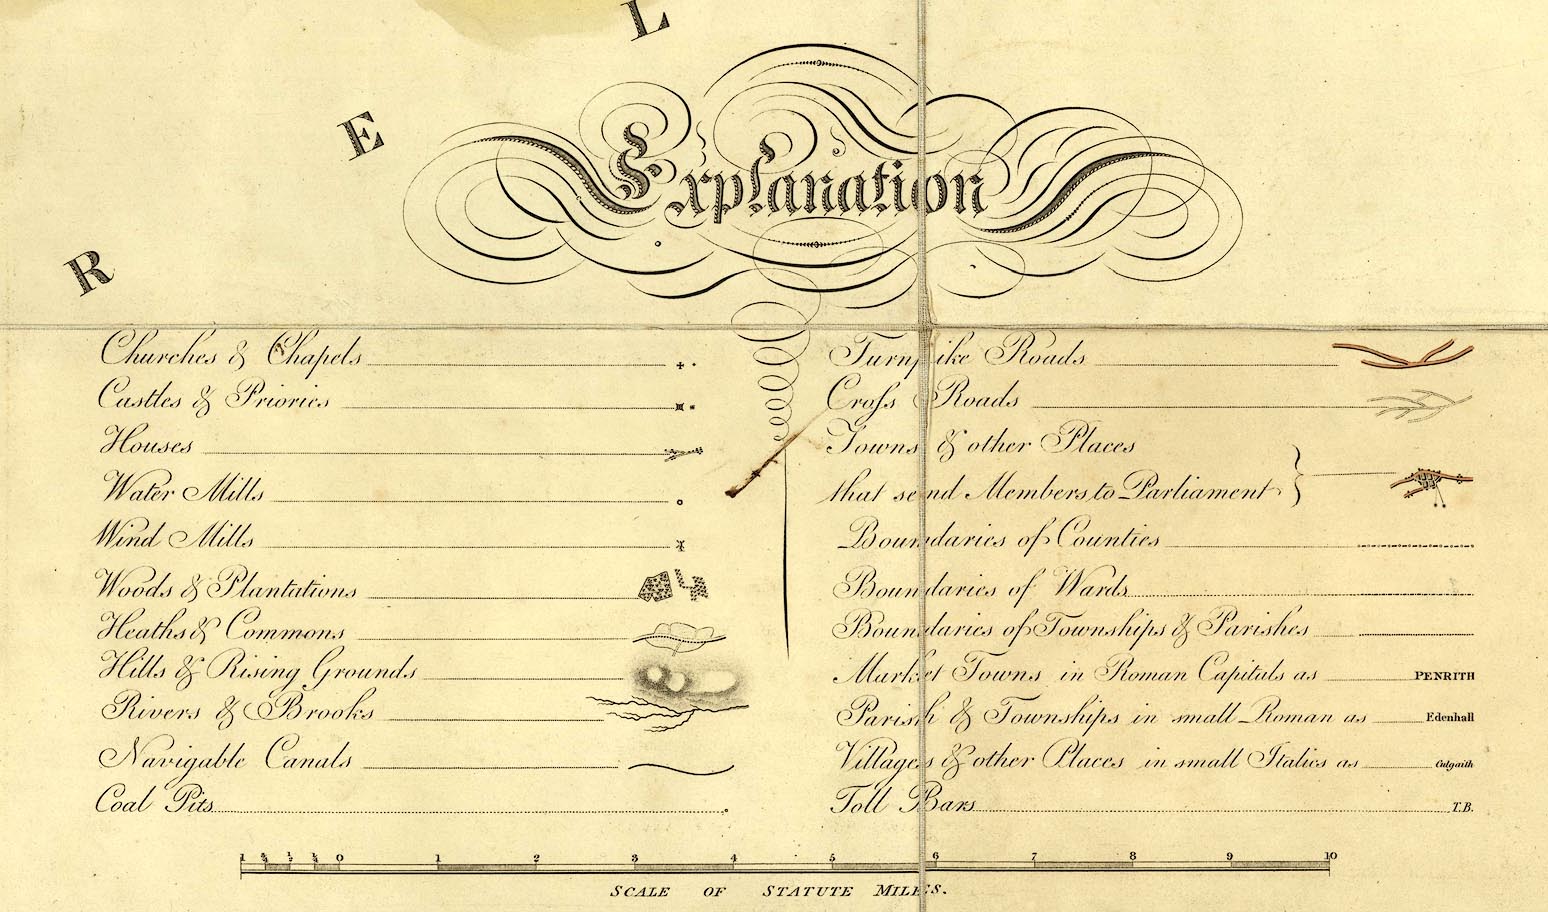 L
E
R
Explanation
Churches & Chapels
Castles & Priories
Houses
Water Mills
Wind Mills
Woods & Plantations
Heaths & Commons
Hills & Rising Grounds
Rivers & Brooks
Navigable Canals
Coal Pits
Turnpike Roads
Cross Roads
Towns & other Places
that send Members to Parliament
Boundaries of Counties
Boundaries of Wards
Boundaries of Townships & Parishes
Market Towns in Roman Capitals as PENRITH
Parish & Townships in small Roman as Edenhall
Villages & other Places in small Italics as Culgaith
Toll Bars T.B.
1 ¾ ½ ¼ 0 1 2 3 4 5 6 7 8 9 10
SCALE OF STATUTE MILES.